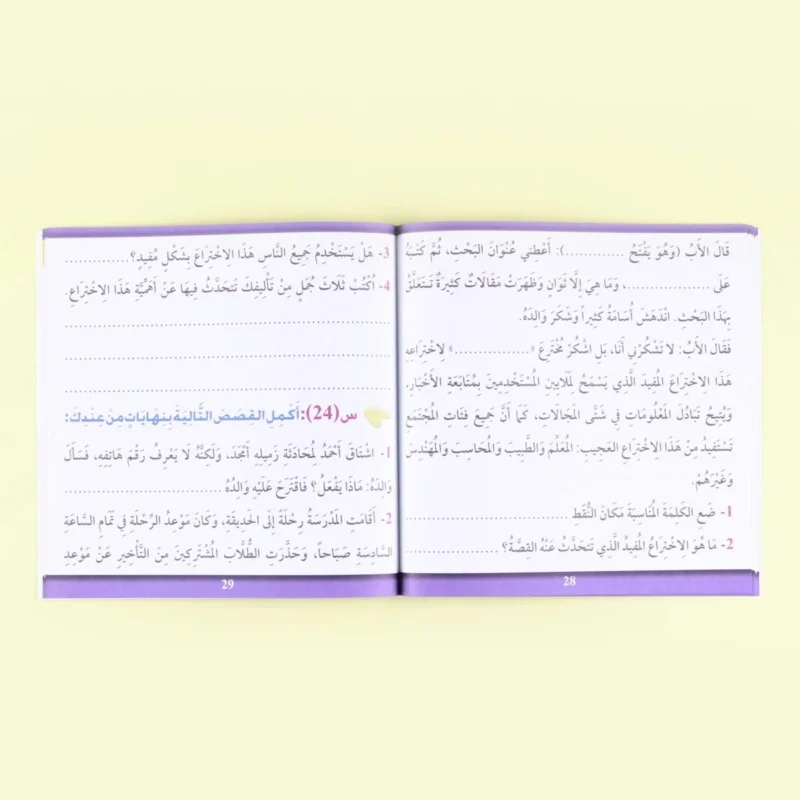 قَالَ الأَبُ (وَهُوَ يَفْتَحُ ............): أَعْطِنِي عُنْوَانَ البَحْثِ، ثُمَّ كَتَبَهُ
عَلَى ................، وَمَا هِيَ إِلَّا ثَوَانٍ وَظَهَرَتْ مَقَالَاتٌ كَثِيرَةٌ تَتَعَلَّقُ
بِهَذَا البَحْثِ. انْدَهَشَ أُسَامَةُ كَثِيراً وَشَكَرَ وَالِدَهُ.
فَقَالَ الأَبُ: لَا تَشْكُرْنِي أَنَا، بَلِ اشْكُرْ مُخْتَرِعَ «...............» لِاخْتِرَاعِهِ
هَذَا الِاخْتِرَاعَ المُفِيدَ الَّذِي يَسْمَحُ لِمَلَايِينِ المُسْتَخْدِمِينَ بِمُتَابَعَةِ الأَخْبَارِ،
وَيُتِيحُ تَبَادُلَ المَعْلُومَاتِ فِي شَتَّى المَجَالَاتِ، كَمَا أَنَّ جَمِيعَ فِئَاتِ المُجْتَمَعِ
تَسْتَفِيدُ مِنْ هَذَا الِاخْتِرَاعِ العَجِيبِ: المُعَلِّمَ وَالطَّبِيبَ وَالمُحَاسِبَ وَالمُهَنْدِسَ
وَغَيْرَهُمْ.
1- ضَعِ الكَلِمَةَ المُنَاسِبَةَ مَكَانَ النُّقَطِ ..............................
2- مَا هُوَ الِاخْتِرَاعُ المُفِيدُ الَّذِي تَتَحَدَّثُ عَنْهُ القِصَّةُ؟ ..................
28
3- هَلْ يَسْتَخْدِمُ جَمِيعُ النَّاسِ هَذَا الِاخْتِرَاعَ بِشَكْلٍ مُفِيدٍ؟..............
4- اُكْتُبْ ثَلَاثَ جُمَلٍ مِنْ تَأْلِيفِكَ تَتَحَدَّثُ فِيهَا عَنْ أَهَمِّيَّةِ هَذَا الِاخْتِرَاعِ.
................................................................
................................................................
................................................................
س(24): أَكْمِلِ القِصَصَ التَّالِيَةَ بِنِهَايَاتٍ مِنْ عِنْدِكَ:
1- اشْتَاقَ أَحْمَدُ لِمُحَادَثَةِ زَمِيلِهِ أَمْجَدَ، وَلَكِنَّهُ لَا يَعْرِفُ رَقْمَ هَاتِفِهِ، فَسَأَلَ
وَالِدَهُ: مَاذَا يَفْعَلُ؟ فَاقْتَرَحَ عَلَيْهِ وَالِدُهُ ..............................
2- أَقَامَتِ المَدْرَسَةُ رِحْلَةً إِلَى الحَدِيقَةِ، وَكَانَ مَوْعِدُ الرِّحْلَةِ فِي تَمَامِ السَّاعَةِ
السَّادِسَةِ صَبَاحاً، وَحَذَّرَتِ الطُّلَّابَ المُشْتَرِكِينَ مِنَ التَّأْخِيرِ عَنْ مَوْعِدِ
29